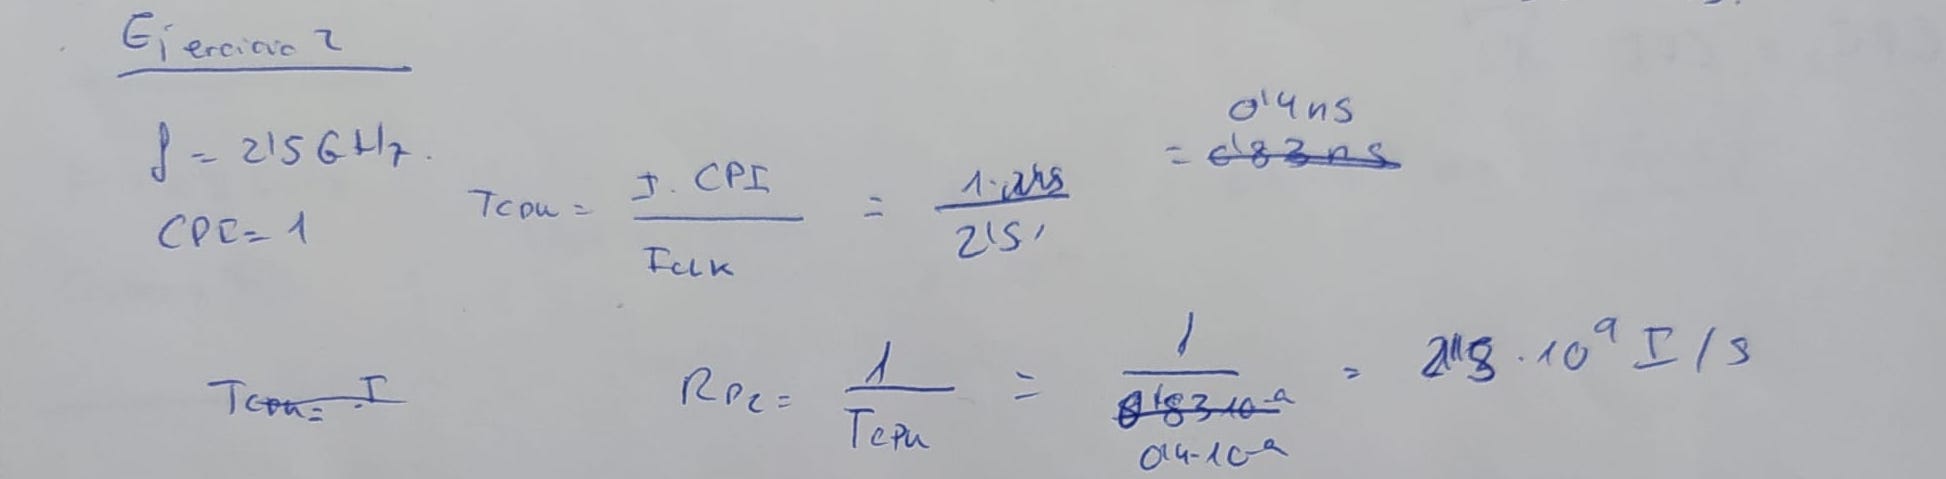 Ejercicio 2
f = 2'5 GHz.
CPI = 1
Tcpu = I · CPI / Fclk = 1 · / 2'5 = 0'4 ns
Tcpu = I
Rpc = 1 / Tcpu = 1 / 0'4·10^-9 = · 10^9 I/s